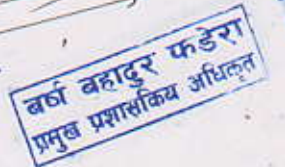 वर्ष बहादुर फडेरा
प्रमुख प्रशासकिय अधिकृत